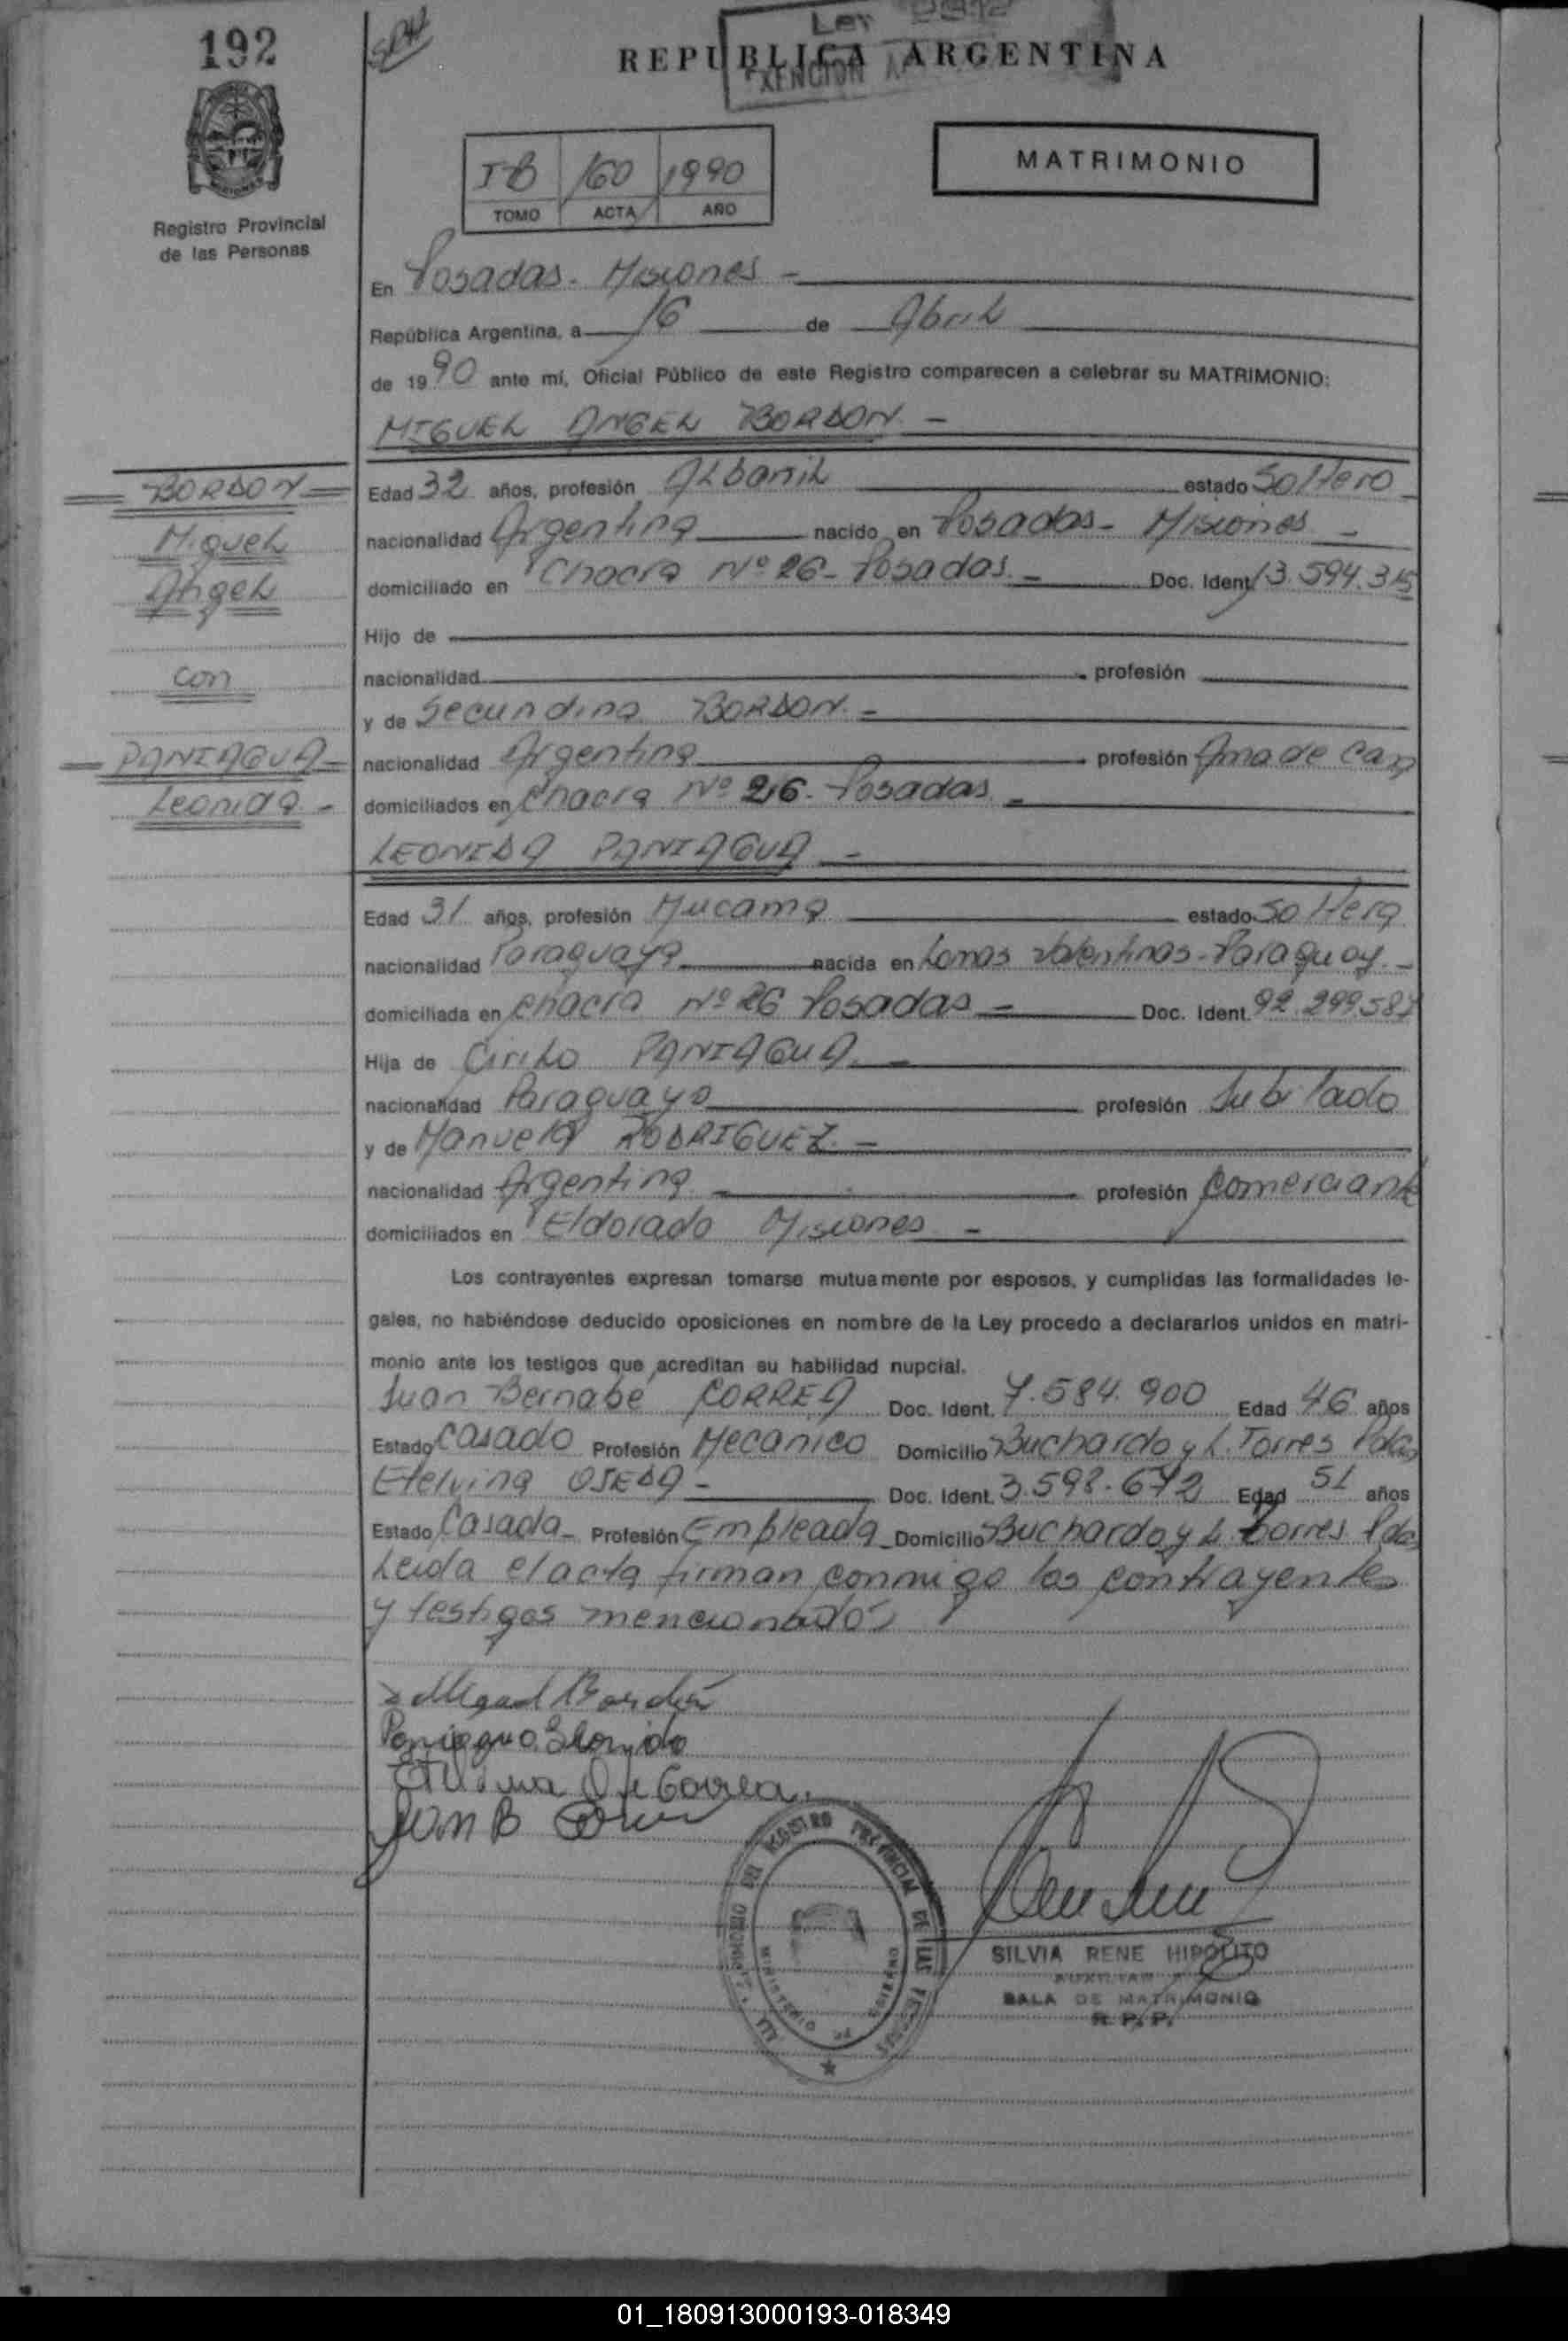 192
Ley
REPUBLICA ARGENTINA
EXENCION
IB 160 1990
TOMO ACTA AÑO
MATRIMONIO
Registro Provincial
de las Personas
En Posadas - Misiones -
República Argentina, a 16 de Abril
de 1990 ante mí, Oficial Público de este Registro comparecen a celebrar su MATRIMONIO:
MIGUEL ANGEL BORDON -
BORDON
Miguel
Angel
con
PANIAGUA
Leonida -
Edad 32 años, profesión Albanil estado Soltero
nacionalidad Argentina nacido en Posadas - Misiones -
domiciliado en Chacra Nº 26 - Posadas - Doc. Ident. 13.594.315
Hijo de
nacionalidad profesión
y de Secundina BORDON -
nacionalidad Argentina profesión Ama de casa
domiciliados en Chacra Nº 26 - Posadas -
LEONIDA PANIAGUA -
Edad 31 años, profesión Mucama estado Soltera
nacionalidad Paraguaya nacida en Lomas Valentinas - Paraguay -
domiciliada en Chacra Nº 26 Posadas - Doc. Ident. 92.299.587
Hija de Cirilo PANIAGUA -
nacionalidad Paraguayo profesión Jubilado
y de Manuela RODRIGUEZ -
nacionalidad Argentina profesión Comerciante
domiciliados en Eldorado Misiones -
Los contrayentes expresan tomarse mutuamente por esposos, y cumplidas las formalidades le-
gales, no habiéndose deducido oposiciones en nombre de la Ley procedo a declararlos unidos en matri-
monio ante los testigos que acreditan su habilidad nupcial.
Juan Bernabe CORREA Doc. Ident. 7.584.900 Edad 46 años
Estado Casado Profesión Mecanico Domicilio Buchardo y L. Torres Pdas
Etelvina OJEDA - Doc. Ident. 3.598.672 Edad 51 años
Estado Casada - Profesión Empleada Domicilio Buchardo y L. Torres Pdas
Leida el acta firman conmigo los contrayentes
y testigos mencionados
Miguel Bordón
Paniagua Leonida
Etelvina O de Correa
Juan B Correa
REGISTRO PROVINCIAL DE LAS PERSONAS
MINISTERIO DE GOBIERNO
SILVIA RENE HIPOLITO
AUXILIAR
SALA DE MATRIMONIO
R. P. P.
01_180913000193-018349